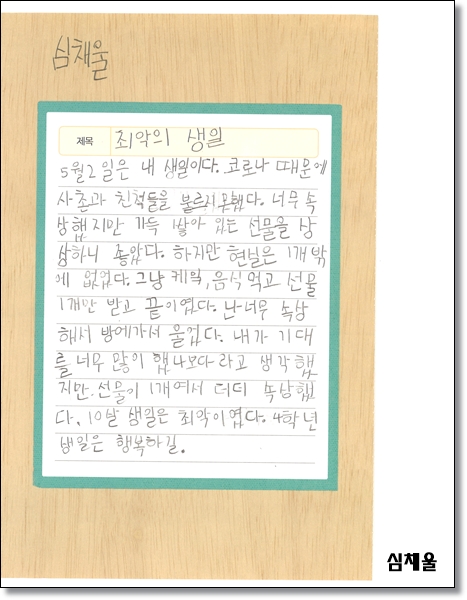 심채울
제목 최악의 생일
5월2일은 내 생일이다. 코로나 때문에
사촌과 친척들을 불르지못했다. 너무 속
상했지만 가득 쌓아 있는 선물을 상
상하니 좋았다. 하지만 현실은 1개밖
에 없었다. 그냥 케익, 음식먹고 선물
1개만 받고 끝이였다. 난 너무 속상
해서 방에가서 울었다. 내가 기대
를 너무 많이 했나보다 라고 생각했
지만 선물이 1개여서 더더 속상했
다. 10살 생일은 최악이였다. 4학년
생일은 행복하길.
심채울